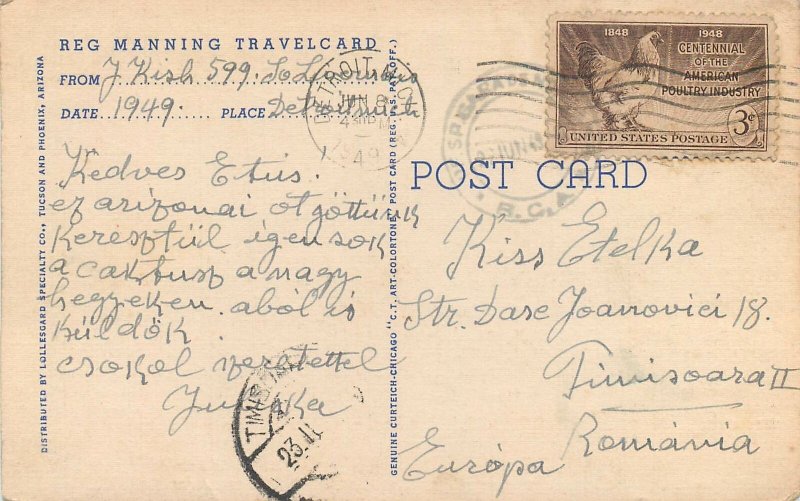 REG MANNING TRAVELCARD
FROM J Kish 599. So
DATE 1949. PLACE Detroit Mich
Kedves Etus.
ez arizonai ot göttünk
keresztül igen sok
a caktusz a nagy
hegyeken. aból is
küldök.
csokol szeretettel
DISTRIBUTED BY LOLLESGARD SPECIALTY CO., TUCSON AND PHOENIX, ARIZONA
GENUINE CURTEICH-CHICAGO "C.T. ART-COLORTONE" POST CARD (REG. U.S. PAT. OFF.)
DETROIT
JUN 8
1949
TIMIS
23 IU
POST CARD
1848 1948
CENTENNIAL
OF THE
AMERICAN
POULTRY INDUSTRY
3¢
UNITED STATES POSTAGE
Kiss Etelka
Str. Dase Joanovici 18.
Timisoara II
Románia
Európa